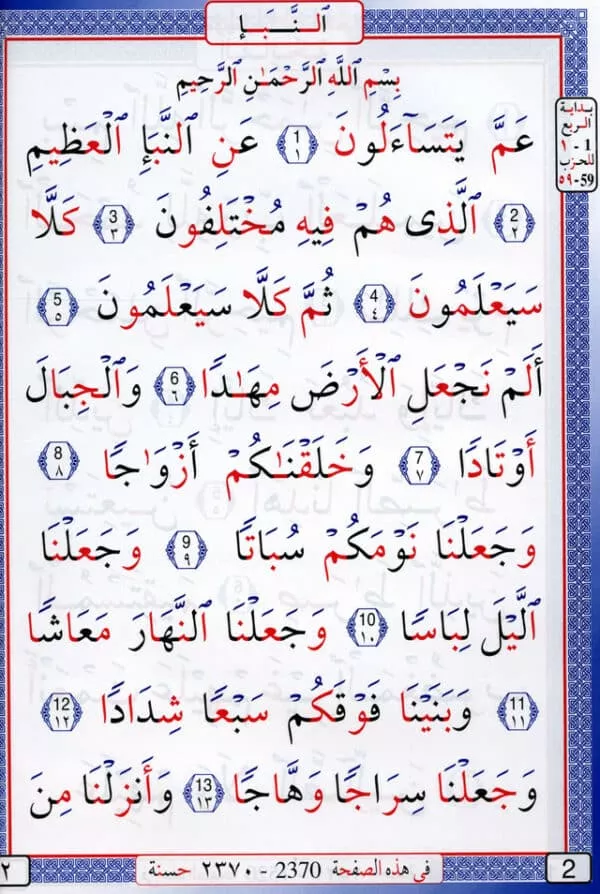 النَّبَإ
بِسْمِ ٱللَّهِ ٱلرَّحْمَـٰنِ ٱلرَّحِيمِ
بداية
الربع
1 - ١
للحزب
59-٥٩
عَمَّ يَتَسَآءَلُونَ 1 ١ عَنِ ٱلنَّبَإِ ٱلْعَظِيمِ
2 ٢ ٱلَّذِى هُمْ فِيهِ مُخْتَلِفُونَ 3 ٣ كَلَّا
سَيَعْلَمُونَ 4 ٤ ثُمَّ كَلَّا سَيَعْلَمُونَ 5 ٥
أَلَمْ نَجْعَلِ ٱلْأَرْضَ مِهَـٰدًا 6 ٦ وَٱلْجِبَالَ
أَوْتَادًا 7 ٧ وَخَلَقْنَـٰكُمْ أَزْوَٰجًا 8 ٨
وَجَعَلْنَا نَوْمَكُمْ سُبَاتًا 9 ٩ وَجَعَلْنَا
ٱلَّيْلَ لِبَاسًا 10 ١٠ وَجَعَلْنَا ٱلنَّهَارَ مَعَاشًا
11 ١١ وَبَنَيْنَا فَوْقَكُمْ سَبْعًا شِدَادًا 12 ١٢
وَجَعَلْنَا سِرَاجًا وَهَّاجًا 13 ١٣ وَأَنزَلْنَا مِنَ
2 في هذه الصفحة 2370 - ٢٣٧٠ حسنة ٢